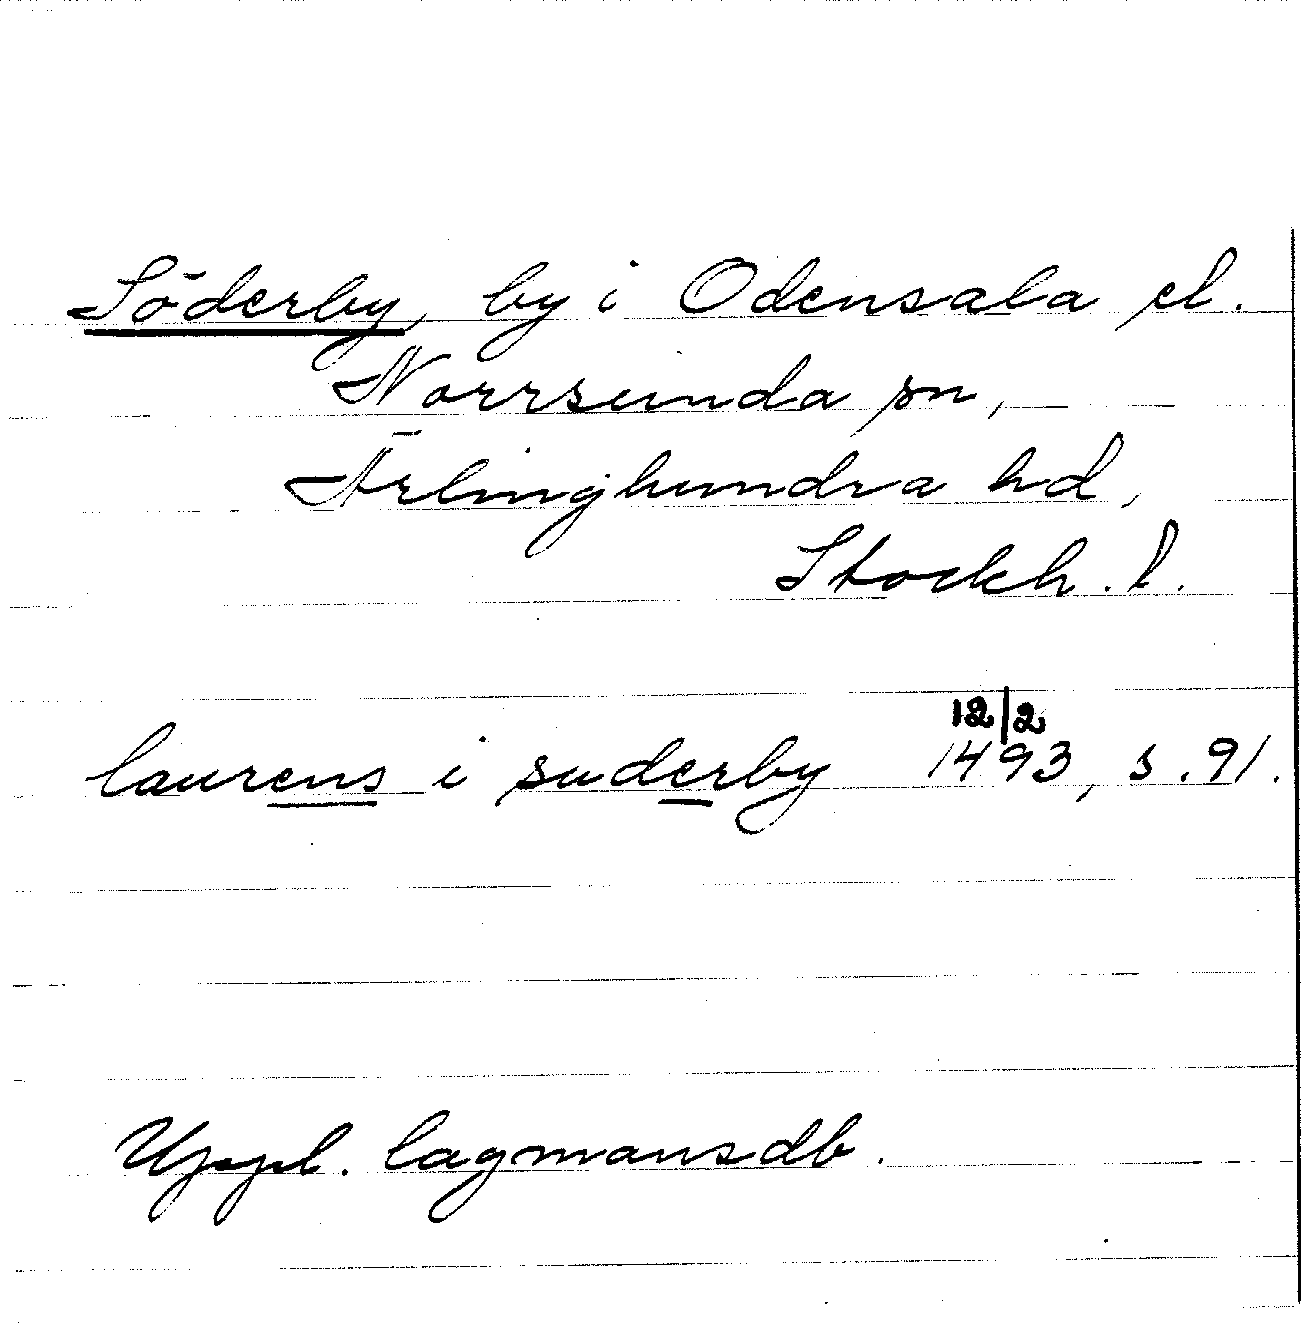 Söderby, by i Odensala el.
Norrsunda sn,
Ärlinghundra hd,
Stockh. l.
12/2
laurens i suderby 1493, s. 91.
Uppl. lagmansdb.